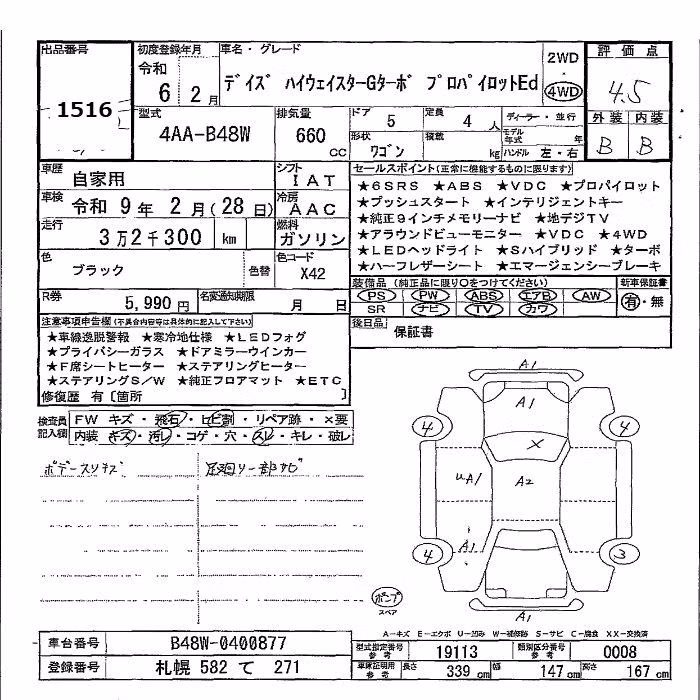 出品番号
1516
初度登録年月
令和
6 2月
車名・グレード
デイズ ハイウェイスターGターボ プロパイロットEd
2WD
4WD
評価点
4.5
外装 内装
B B
型式
4AA-B48W
排気量
660
CC
ドア 5
定員 4 人
ディーラー・並行
形状
ワゴン
積載 kg
モデル年式 年
ハンドル 左・右
車歴
自家用
シフト
IAT
車検
令和 9年 2月(28日)
冷房
AAC
走行
3万2千300 km
燃料
ガソリン
色
ブラック
色替
色コード
X42
R券
5,990円
名変通知期限
月 日
セールスポイント(正常に機能するものに限ります)
★6SRS ★ABS ★VDC ★プロパイロット
★プッシュスタート ★インテリジェントキー
★純正9インチメモリーナビ ★地デジTV
★アラウンドビューモニター ★VDC ★4WD
★LEDヘッドライト ★Sハイブリッド ★ターボ
★ハーフレザーシート ★エマージェンシーブレーキ
装備品 (純正品に限り○をつけてください)
PS PW ABS エアB AW
SR ナビ TV カワ
新車保証書
有・無
後日品
保証書
注意事項申告欄(不具合内容等は具体的に記入して下さい)
★車線逸脱警報 ★寒冷地仕様 ★LEDフォグ
★プライバシーガラス ★ドアミラーウインカー
★F席シートヒーター ★ステアリングヒーター
★ステアリングS/W ★純正フロアマット ★ETC
修復歴 有〔箇所 〕
検査員記入欄
FW キズ・飛石・ヒビ割・リペア跡・×要
内装 キズ・汚レ・コゲ・穴・スレ・キレ・破レ
ボデースリキズ
足廻り一部サビ
A1
A1
4 4
×
uA1 A2
A1
4 3
A1
ポンプ
スペア
A-キズ E-エクボ U-凹み W-補修跡 S-サビ C-腐食 XX-交換済
車台番号
B48W-0400877
登録番号
札幌 582 て 271
型式指定番号
参考
19113
類別区分番号
参考
0008
車庫証明用
参考
長さ 339cm
幅 147cm
高さ 167cm